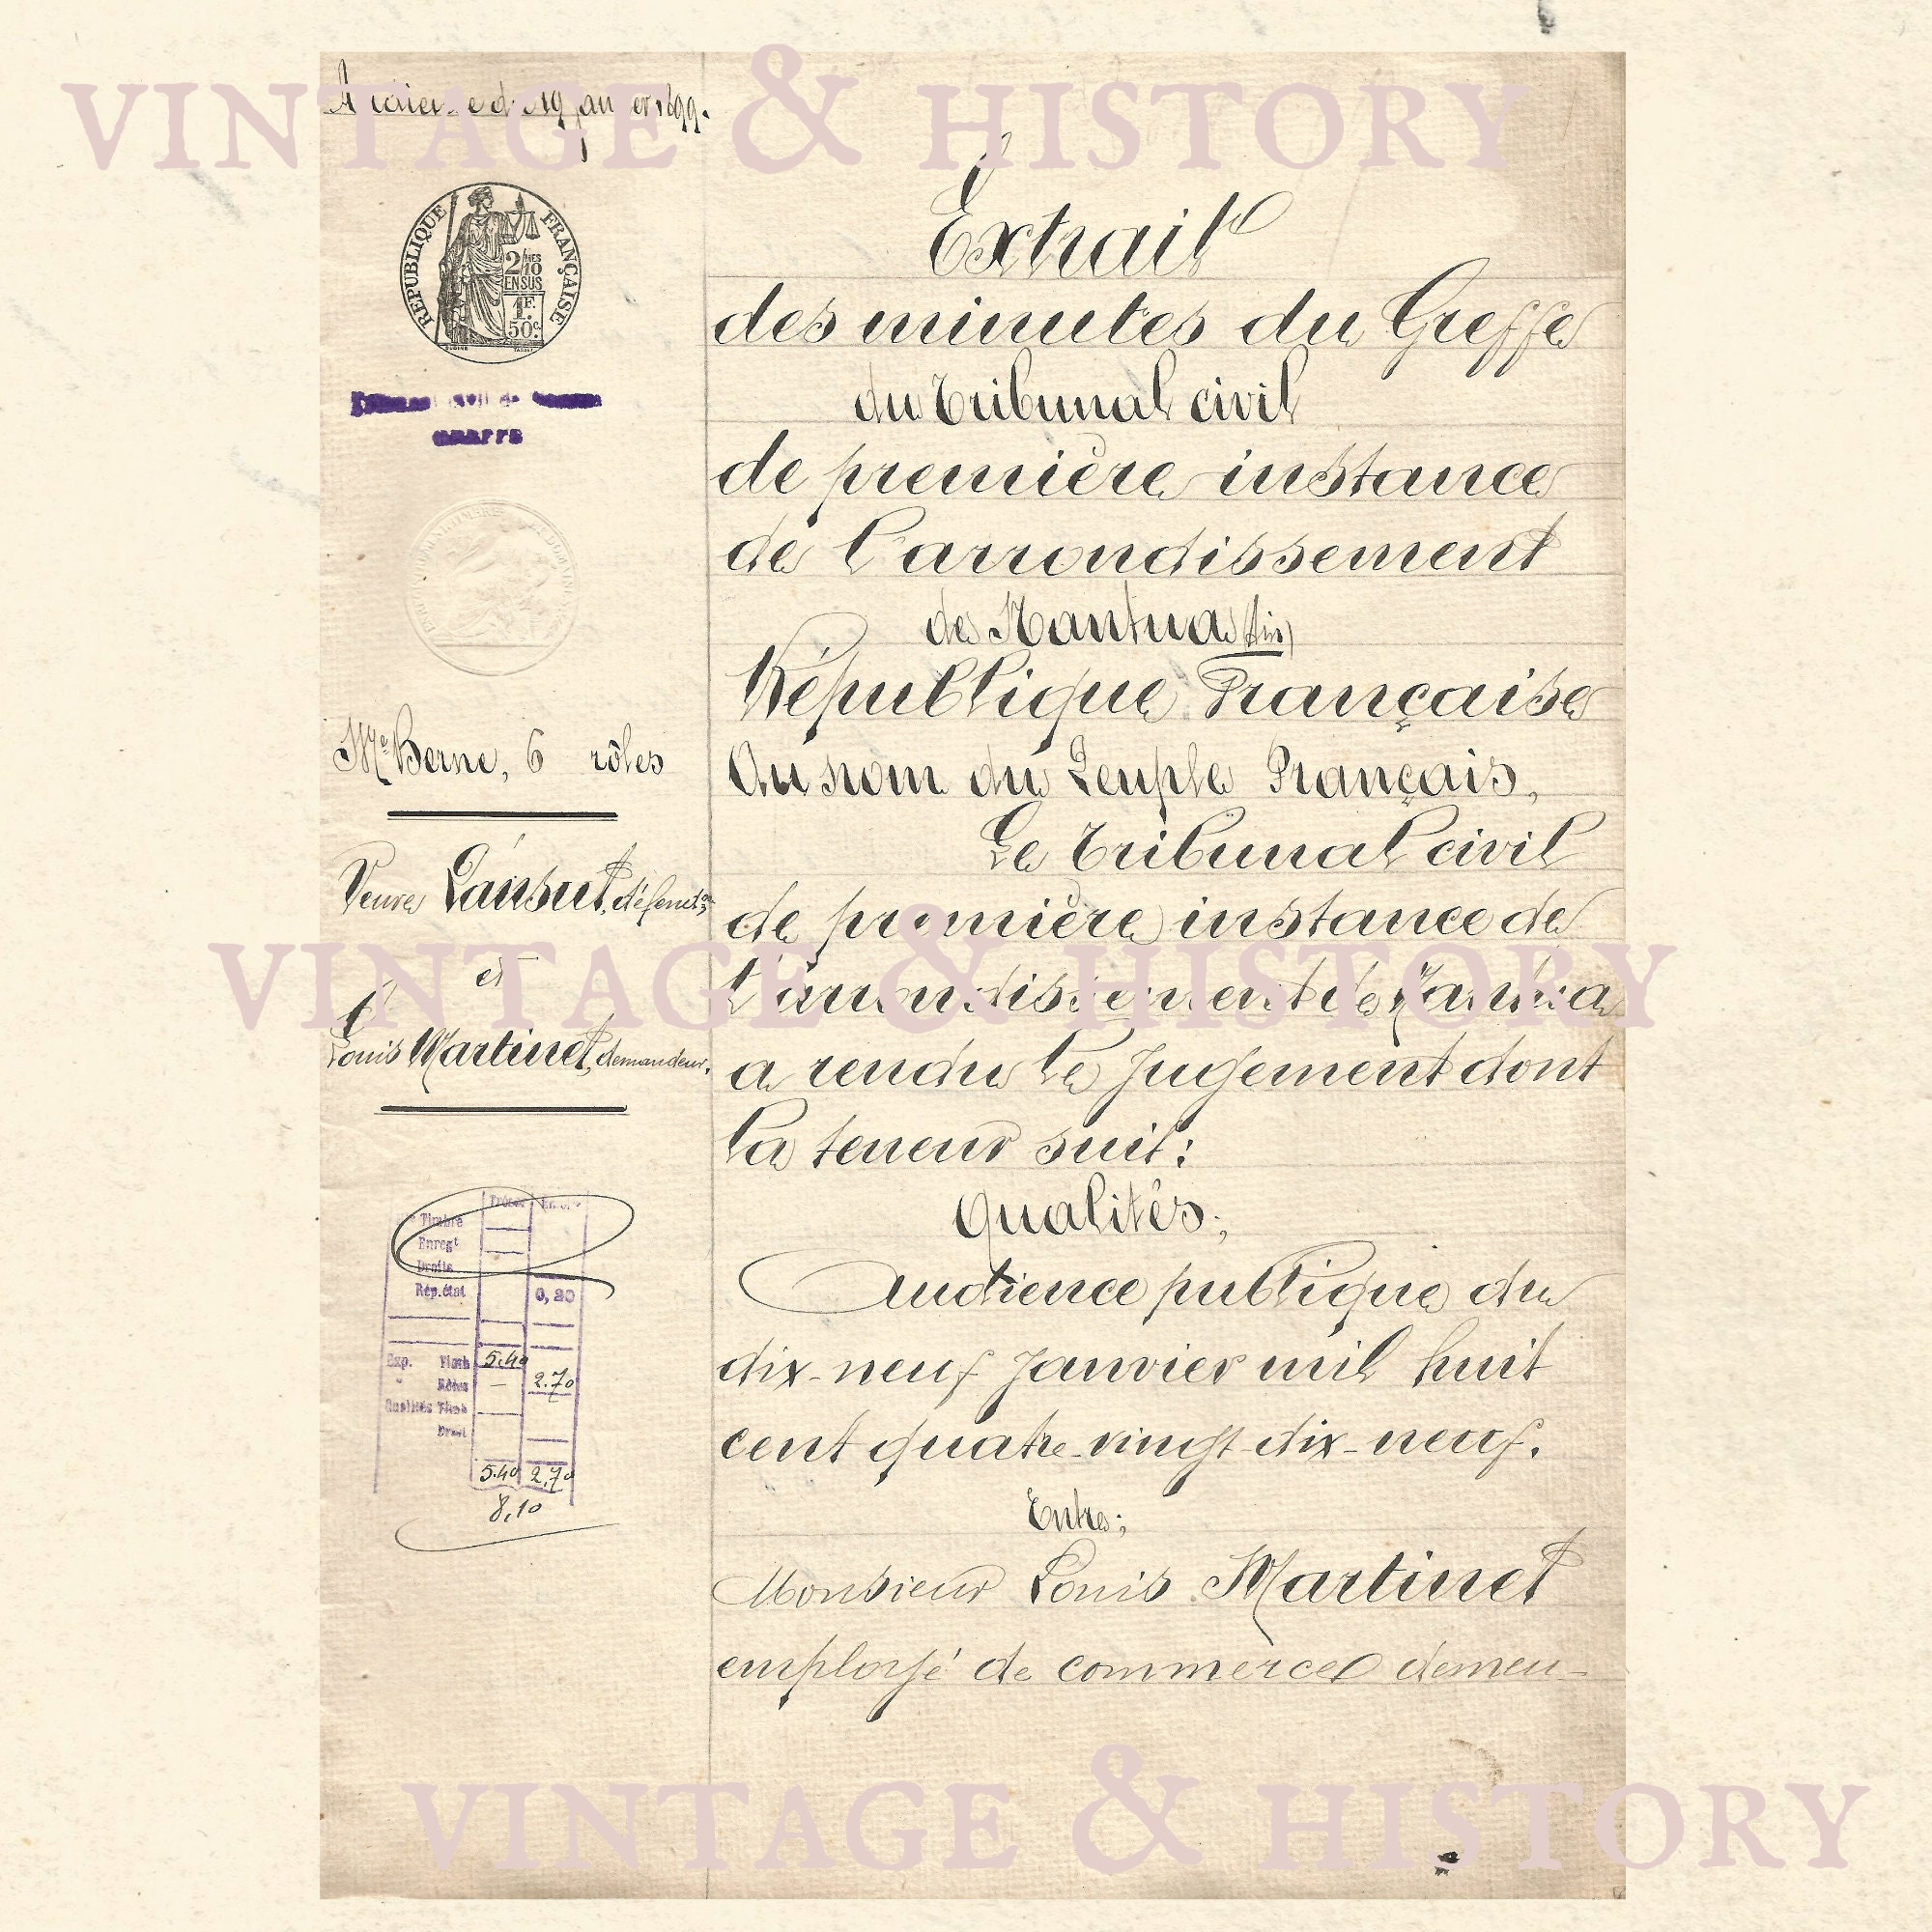 VINTAGE & HISTORY
Audience du 19 janvier 1899.
RÉPUBLIQUE FRANÇAISE
2/10 MES
EN SUS
1F.
50c.
Mᵉ Berne, 6 rôles
Veuve
et
Louis Martinet, demandeur.
Timbre
Enregᵗ
Droits
Rép. état 0,20
Exp. 5.40
Rôles — 2.70
Qualités
5.40 2.70
8,10
Extrait
des minutes du Greffe
du Tribunal civil
de première instance
de l'arrondissement
de Nantua (Ain)
République Française
Au nom du Peuple Français,
Le Tribunal civil
de première instance de
l'arrondissement de Nantua
a rendu le Jugement dont
la teneur suit:
Qualités;
Audience publique du
dix-neuf Janvier mil huit
cent quatre-vingt-dix-neuf.
Entre;
Monsieur Louis Martinet
employé de commerce demeu-
VINTAGE & HISTORY
VINTAGE & HISTORY